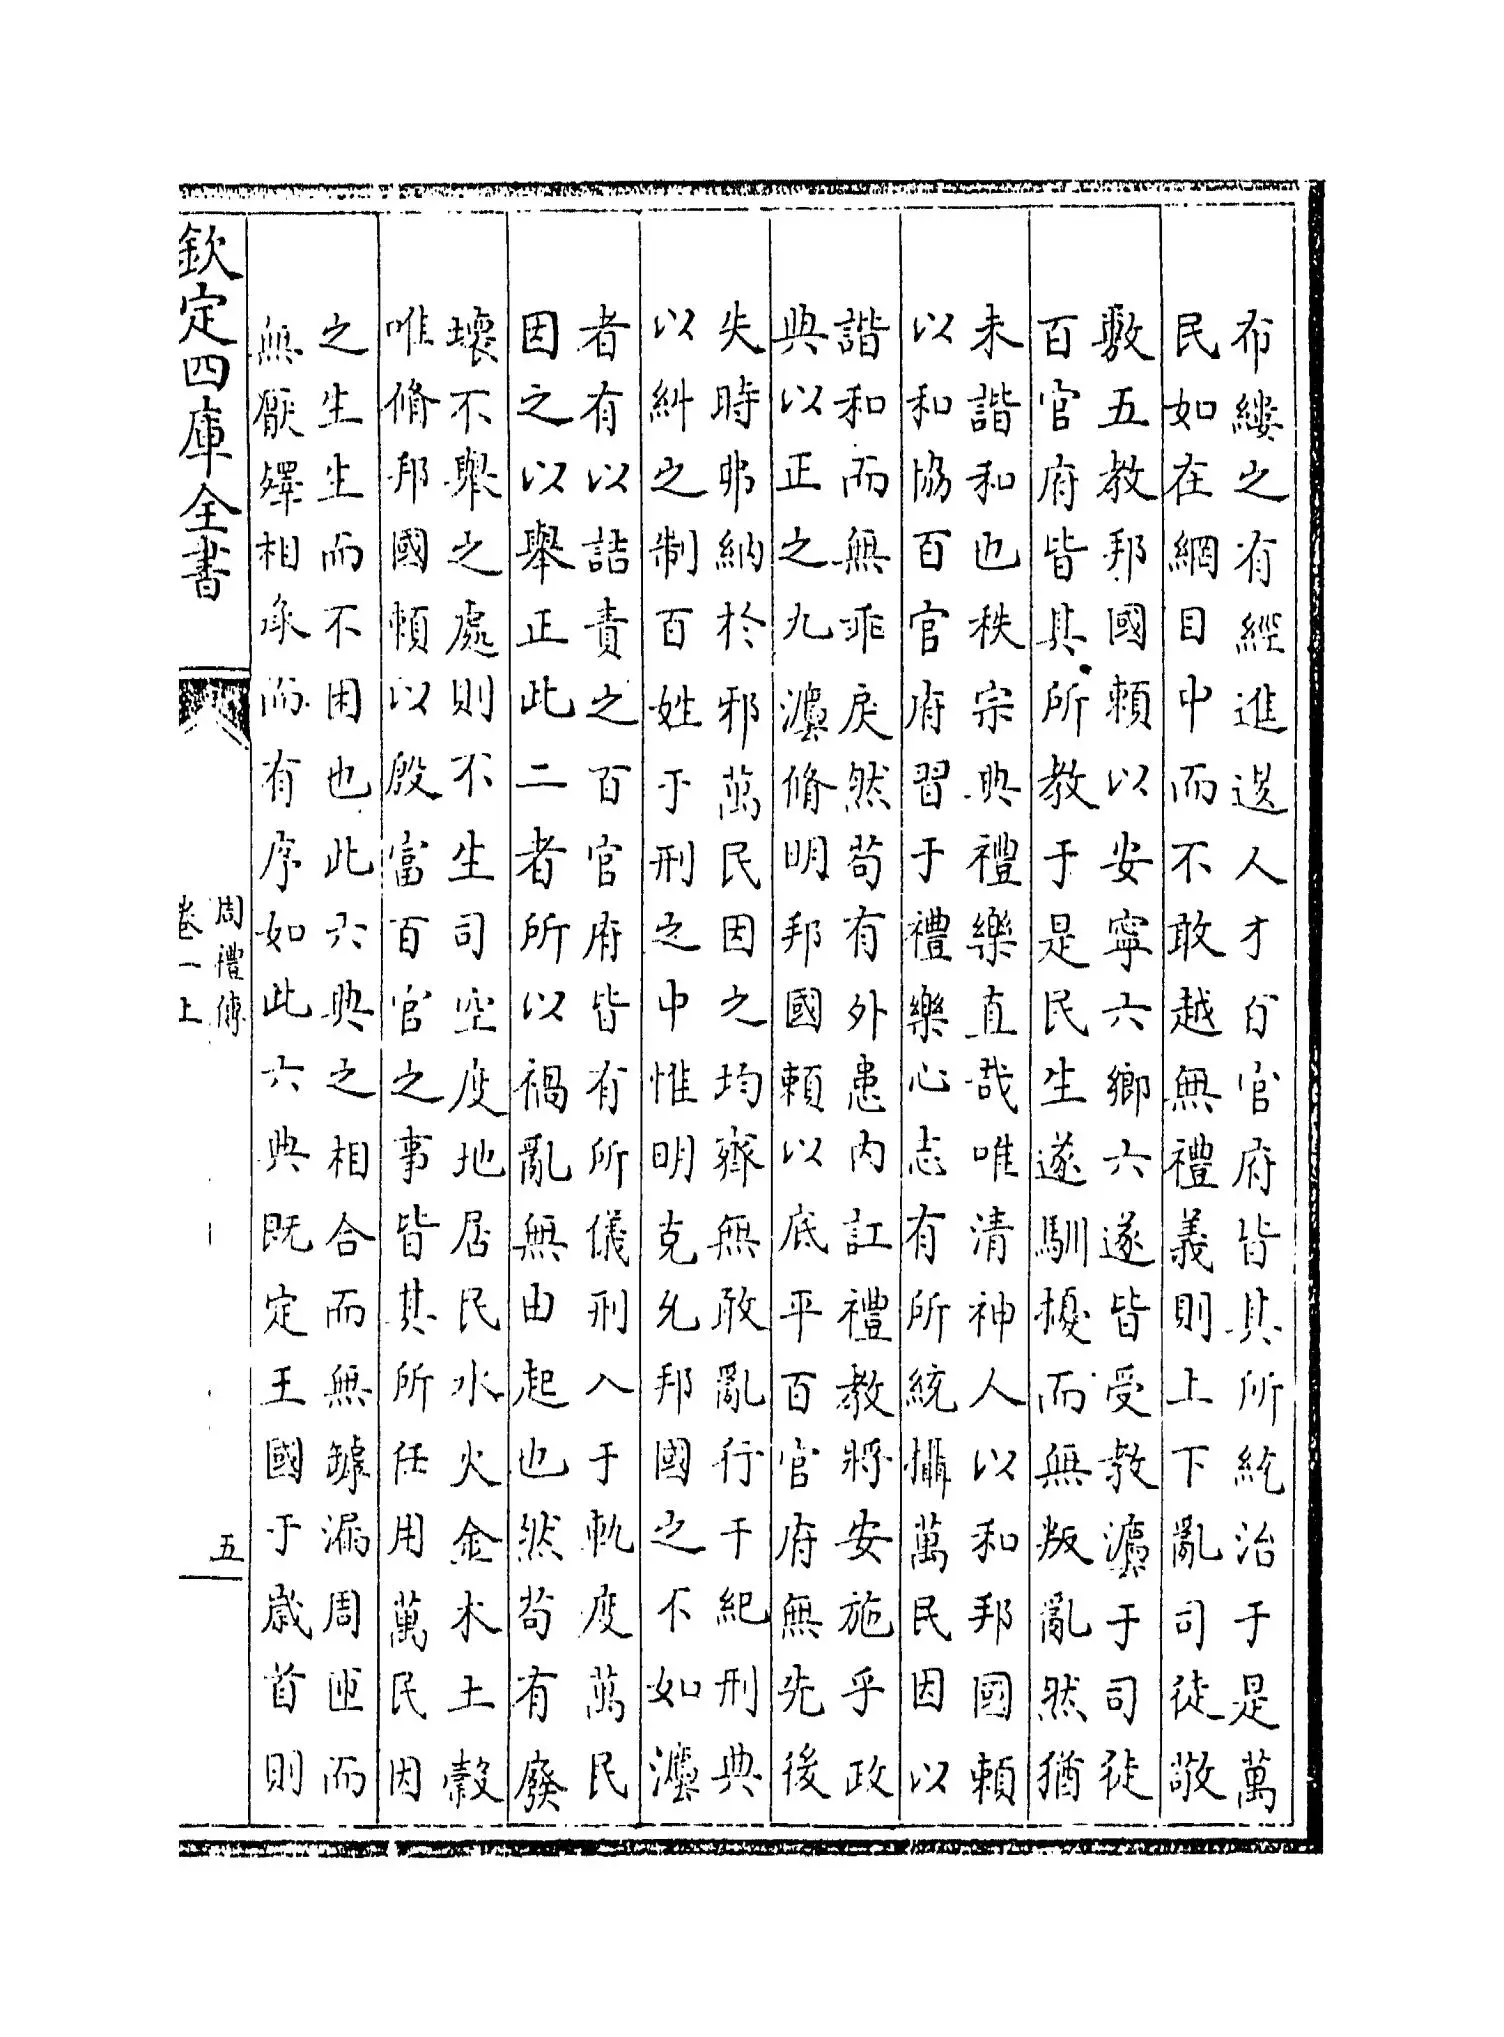 布縷之有經進退人才分官府皆其所統治于是萬
民如在網目中而不敢越無禮義則上下亂司徒敬
敷五教邦國賴以安寧六鄉六遂皆受教灋于司徒
百官府皆其所教于是民生遂馴擾而無叛亂然猶
未諧和也秩宗典禮樂直哉唯清神人以和邦國賴
以和協百官府習于禮樂心志有所統攝萬民因以
諧和而無乖戾然苟有外患內訌禮教將安施乎政
典以正之九灋脩明邦國賴以底平百官府無先後
失時弗納於邪萬民因之均齊無敢亂行干紀刑典
以糾之制百姓于刑之中惟明克允邦國之不如灋
者有以詰責之百官府皆有所儀刑入于軌度萬民
因之以舉正此二者所以禍亂無由起也然苟有廢
壞不舉之處則不生司空度地居民水火金木土穀
唯脩邦國頼以殷富百官之事皆其所任用萬民因
之生生而不困也此六典之相合而無罅漏周匝而
無厭繹相承而有序如此六典既定王國于歲首則
欽定四庫全書
周禮傳
卷一上
五